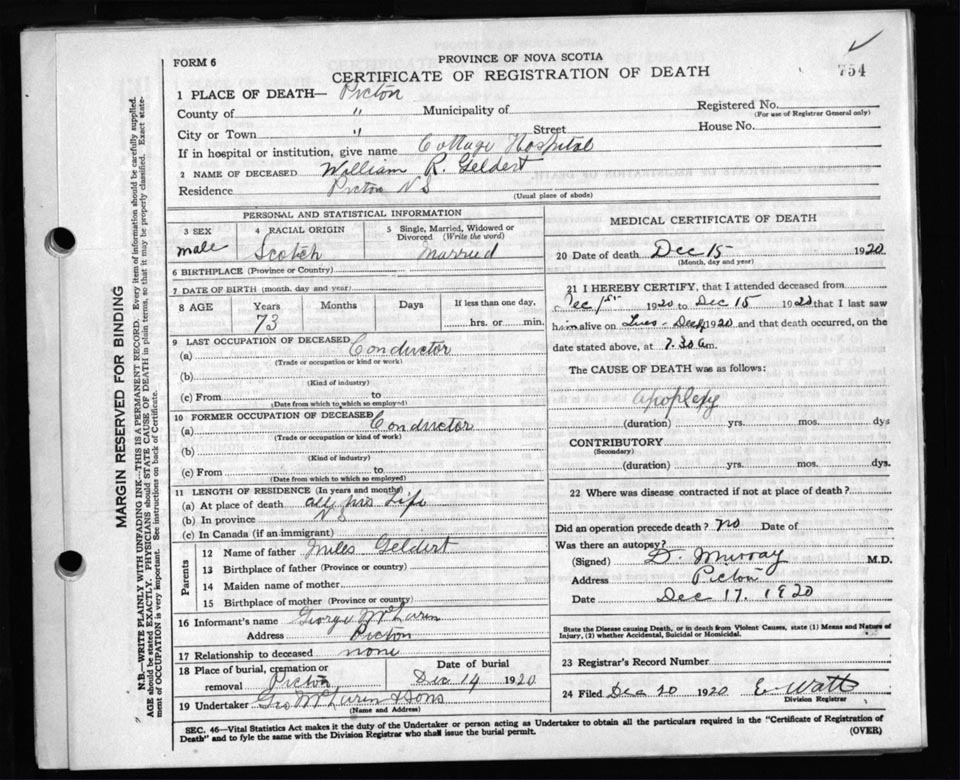 FORM 6
PROVINCE OF NOVA SCOTIA
CERTIFICATE OF REGISTRATION OF DEATH
754
1 PLACE OF DEATH— Picton
County of " Municipality of Registered No.
(For use of Registrar General only)
City or Town " Street House No.
If in hospital or institution, give name Cottage Hospital
2 NAME OF DECEASED William R. Geldert
Residence Picton N S
(Usual place of abode)
PERSONAL AND STATISTICAL INFORMATION
3 SEX 4 RACIAL ORIGIN 5 Single, Married, Widowed or Divorced (Write the word)
male Scotch Married
6 BIRTHPLACE (Province or Country)
7 DATE OF BIRTH (month, day and year)
8 AGE Years Months Days If less than one day,
73 hrs. or min.
9 LAST OCCUPATION OF DECEASED
(a) Conductor
(Trade or occupation or kind or work)
(b)
(Kind of industry)
(c) From to
(Date from which to which so employed)
10 FORMER OCCUPATION OF DECEASED
(a) Conductor
(Trade or occupation or kind of work)
(b)
(Kind of industry)
(c) From to
(Date from which to which so employed)
11 LENGTH OF RESIDENCE (In years and months)
(a) At place of death all his Life
(b) In province N S
(c) In Canada (if an immigrant)
Parents
12 Name of father Miles Geldert
13 Birthplace of father (Province or country)
14 Maiden name of mother
15 Birthplace of mother (Province or country)
16 Informant's name George McLaren
Address Picton
17 Relationship to deceased none
18 Place of burial, cremation or removal Picton Date of burial Dec 14 1920
19 Undertaker Geo McLaren & Sons
(Name and Address)
MEDICAL CERTIFICATE OF DEATH
20 Date of death Dec 15 1920
(Month, day and year)
21 I HEREBY CERTIFY, that I attended deceased from
Dec 1st 1920 to Dec 15 1920 that I last saw
him alive on Tues - Dec 1920 and that death occurred, on the
date stated above, at 7.30 am.
The CAUSE OF DEATH was as follows:
apoplexy
(duration) yrs. mos. dys
CONTRIBUTORY
(Secondary)
(duration) yrs. mos. dys.
22 Where was disease contracted if not at place of death?
Did an operation precede death? no Date of
Was there an autopsy?
(Signed) D. Murray M.D.
Address Picton
Date Dec 17. 1920
State the Disease causing Death, or in death from Violent Causes, state (1) Means and Nature of
Injury, (2) whether Accidental, Suicidal or Homicidal.
23 Registrar's Record Number
24 Filed Dec 20 1920 E Watt
Division Registrar
SEC. 46—Vital Statistics Act makes it the duty of the Undertaker or person acting as Undertaker to obtain all the particulars required in the "Certificate of Registration of
Death" and to fyle the same with the Division Registrar who shall issue the burial permit.
(OVER)
MARGIN RESERVED FOR BINDING
N.B.—WRITE PLAINLY WITH UNFADING INK—THIS IS A PERMANENT RECORD. Every item of information should be carefully supplied.
AGE should be stated EXACTLY. PHYSICIANS should STATE CAUSE OF DEATH in plain terms, so that it may be properly classified. Exact state-
ment of OCCUPATION is very important. See instructions on back of Certificate.